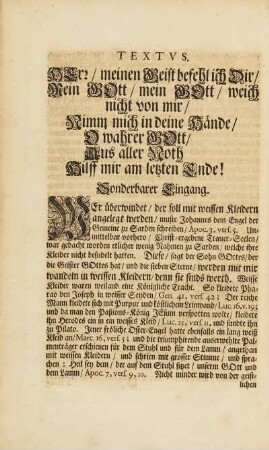 TEXTVS.
HErr / meinen Geist befehl ich Dir /
Mein GOtt / mein GOtt / weich
nicht von mir /
Nimm mich in deine Hände /
O wahrer GOtt /
Aus aller Noth
Hilff mir am letzten Ende!
Sonderbarer Eingang.
WEr überwindet / der soll mit weissen Kleidern
angelegt werden / muste Johannes dem Engel der
Gemeine zu Sarden schreiben / Apoc. 3, vers. 5. Un-
mittelbar vorhero / Christ-ergebene Trauer-Seelen /
war gedacht worden etlicher wenig Nahmen zu Sarden / welche ihre
Kleider nicht besudelt hatten. Diese / sagt der Sohn GOttes / der
die Geister GOttes hat / und die sieben Sterne / werden mit mir
wandeln in weissen Kleidern / denn sie sinds werth. Weisse
Kleider waren weiland eine Königliche Tracht. So kleidete Pha-
rao den Joseph in weisser Seyden / Gen. 41, vers. 42: Der reiche
Mann kleidete sich mit Purpur und köstlichem Leinwand / Luc. 16. v. 19;
und da man den Passions-König JEsum verspotten wolte / kleidete
ihn Herodes ein in ein weisses Kleid / Luc. 23, vers. 11, und sandte ihn
zu Pilato. Jener fröliche Oster-Engel hatte ebenfalls ein lang weiß
Kleid an / Marc. 16, vers. 5; und die triumphirende auserwehlte Pal-
menträger erschienen für dem Stuhl und für dem Lamm / angethan
mit weissen Kleidern / und schrien mit grosser Stimme / und spra-
chen: Heil sey dem / der auf dem Stuhl sitzt / unserm GOtt und
dem Lamm / Apoc. 7, vers. 9, 10. Nicht minder wird von der geist-
lichen